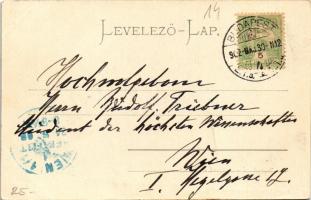 14
LEVELEZŐ-LAP.
BUDAPEST
Hochwolgeborn
Herrn Rudolf Triebner
Student der höchsten Wissenschaften
Wien
I. Hegelgasse 17
WIEN 1/1
25-